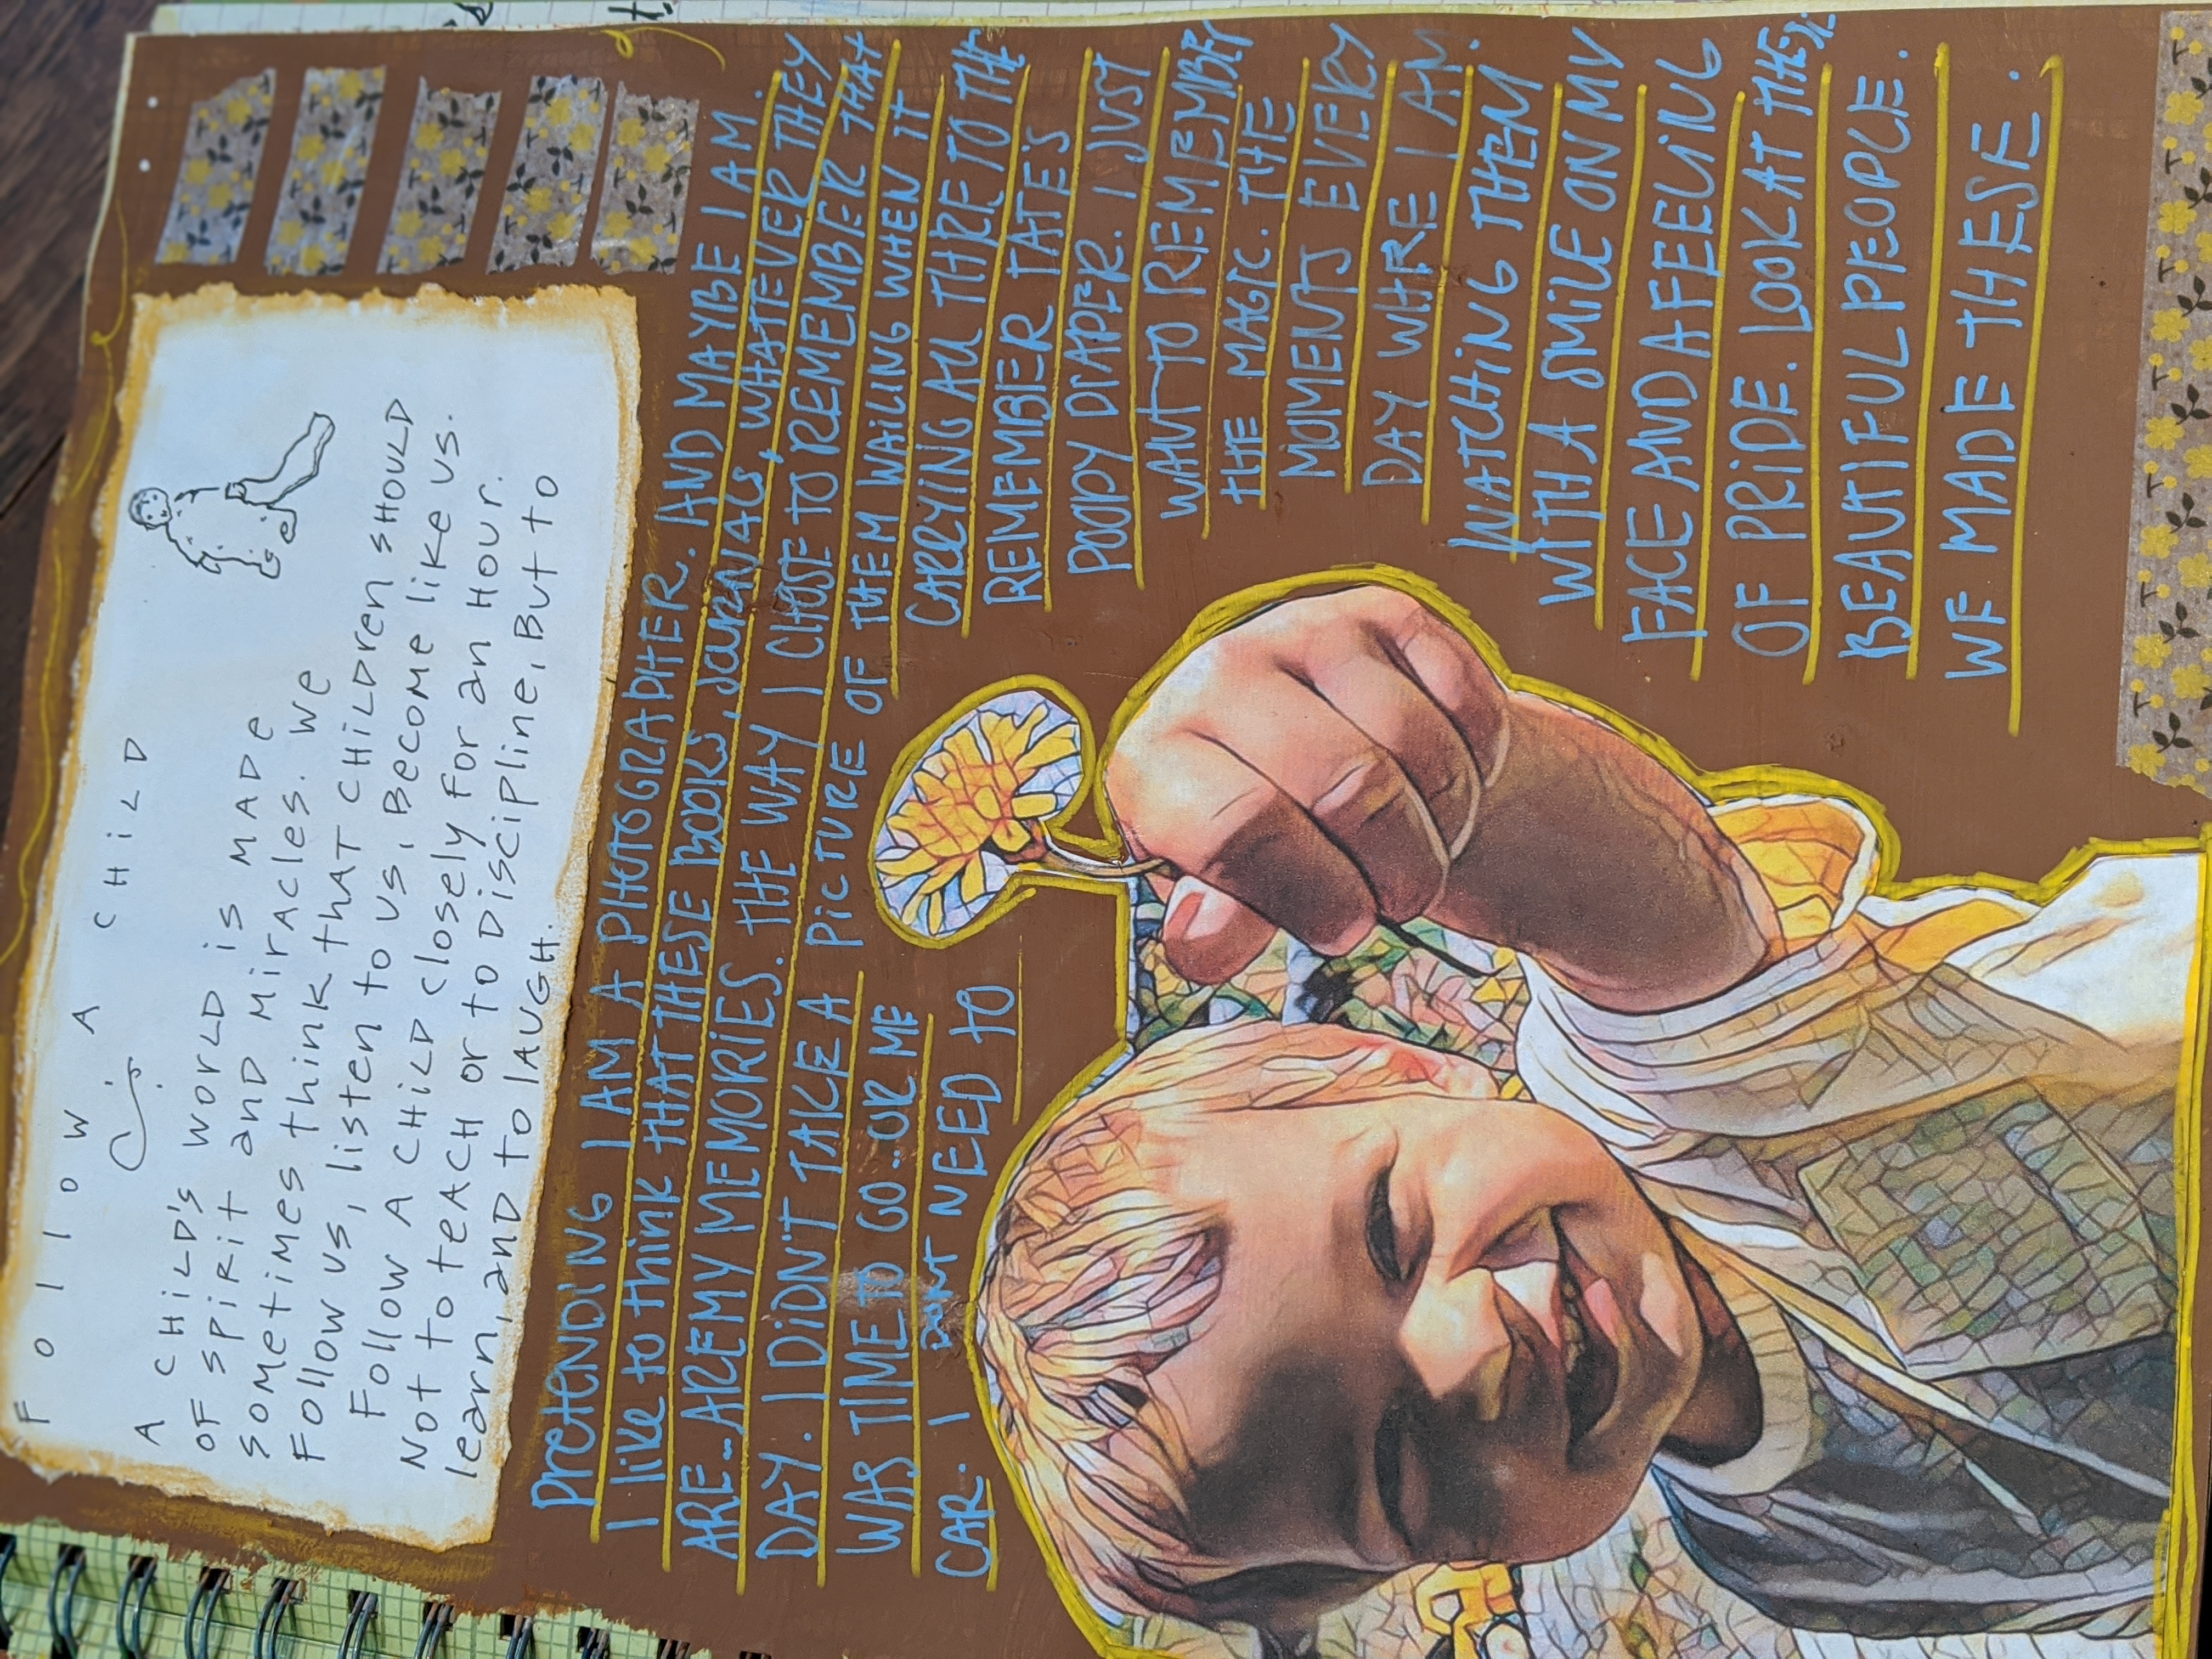 FollOW A CHiLD
A CHiLD's WORLD is MADe
OF SPiRit anD MiRACles. We
sometimes think tHAT CHiLDren sHOULD
Follow us, listen to us, Become like us.
Follow A CHiLD closely for an Hour.
Not to teACH or to Discipline, But to
learn, anD to lAUGH.
PretENDING I AM A PHOTOGRAPHER. AND MAYBE I AM.
I like to think THAT THESE BOOKS, JOURNALS, WHATEVER THEY
ARE... ARE MY MEMORIES. THE WAY I CHOSE TO REMEMBER THAT
DAY. I DIDN'T TAKE A PICTURE OF THEM WAILING WHEN IT
WAS TIME TO GO..OR ME CARRYING ALL THREE TO THE
CAR. I DONT NEED TO REMEMBER TATE'S
POOPY DIAPER. I JUST
WANT TO REMEMBER
THE MAGIC. THE
MOMENTS EVERY
DAY WHERE I AM
WATCHING THEM
WITH A SMILE ON MY
FACE AND A FEELING
OF PRIDE. LOOK AT THESE
BEAUTIFUL PEOPLE.
WE MADE THESE.